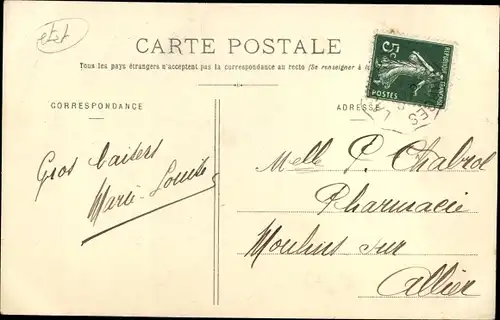 etst
CARTE POSTALE
Tous les pays étrangers n'acceptent pas la correspondance au recto (Se renseigner à la
CORRESPONDANCE
ADRESSE
5c
REPUBLIQUE FRANÇAISE
POSTES
RES
Gros baisers
Marie-Louise
Melle P. Chabrol
Pharmacie
Moulins sur
Allier